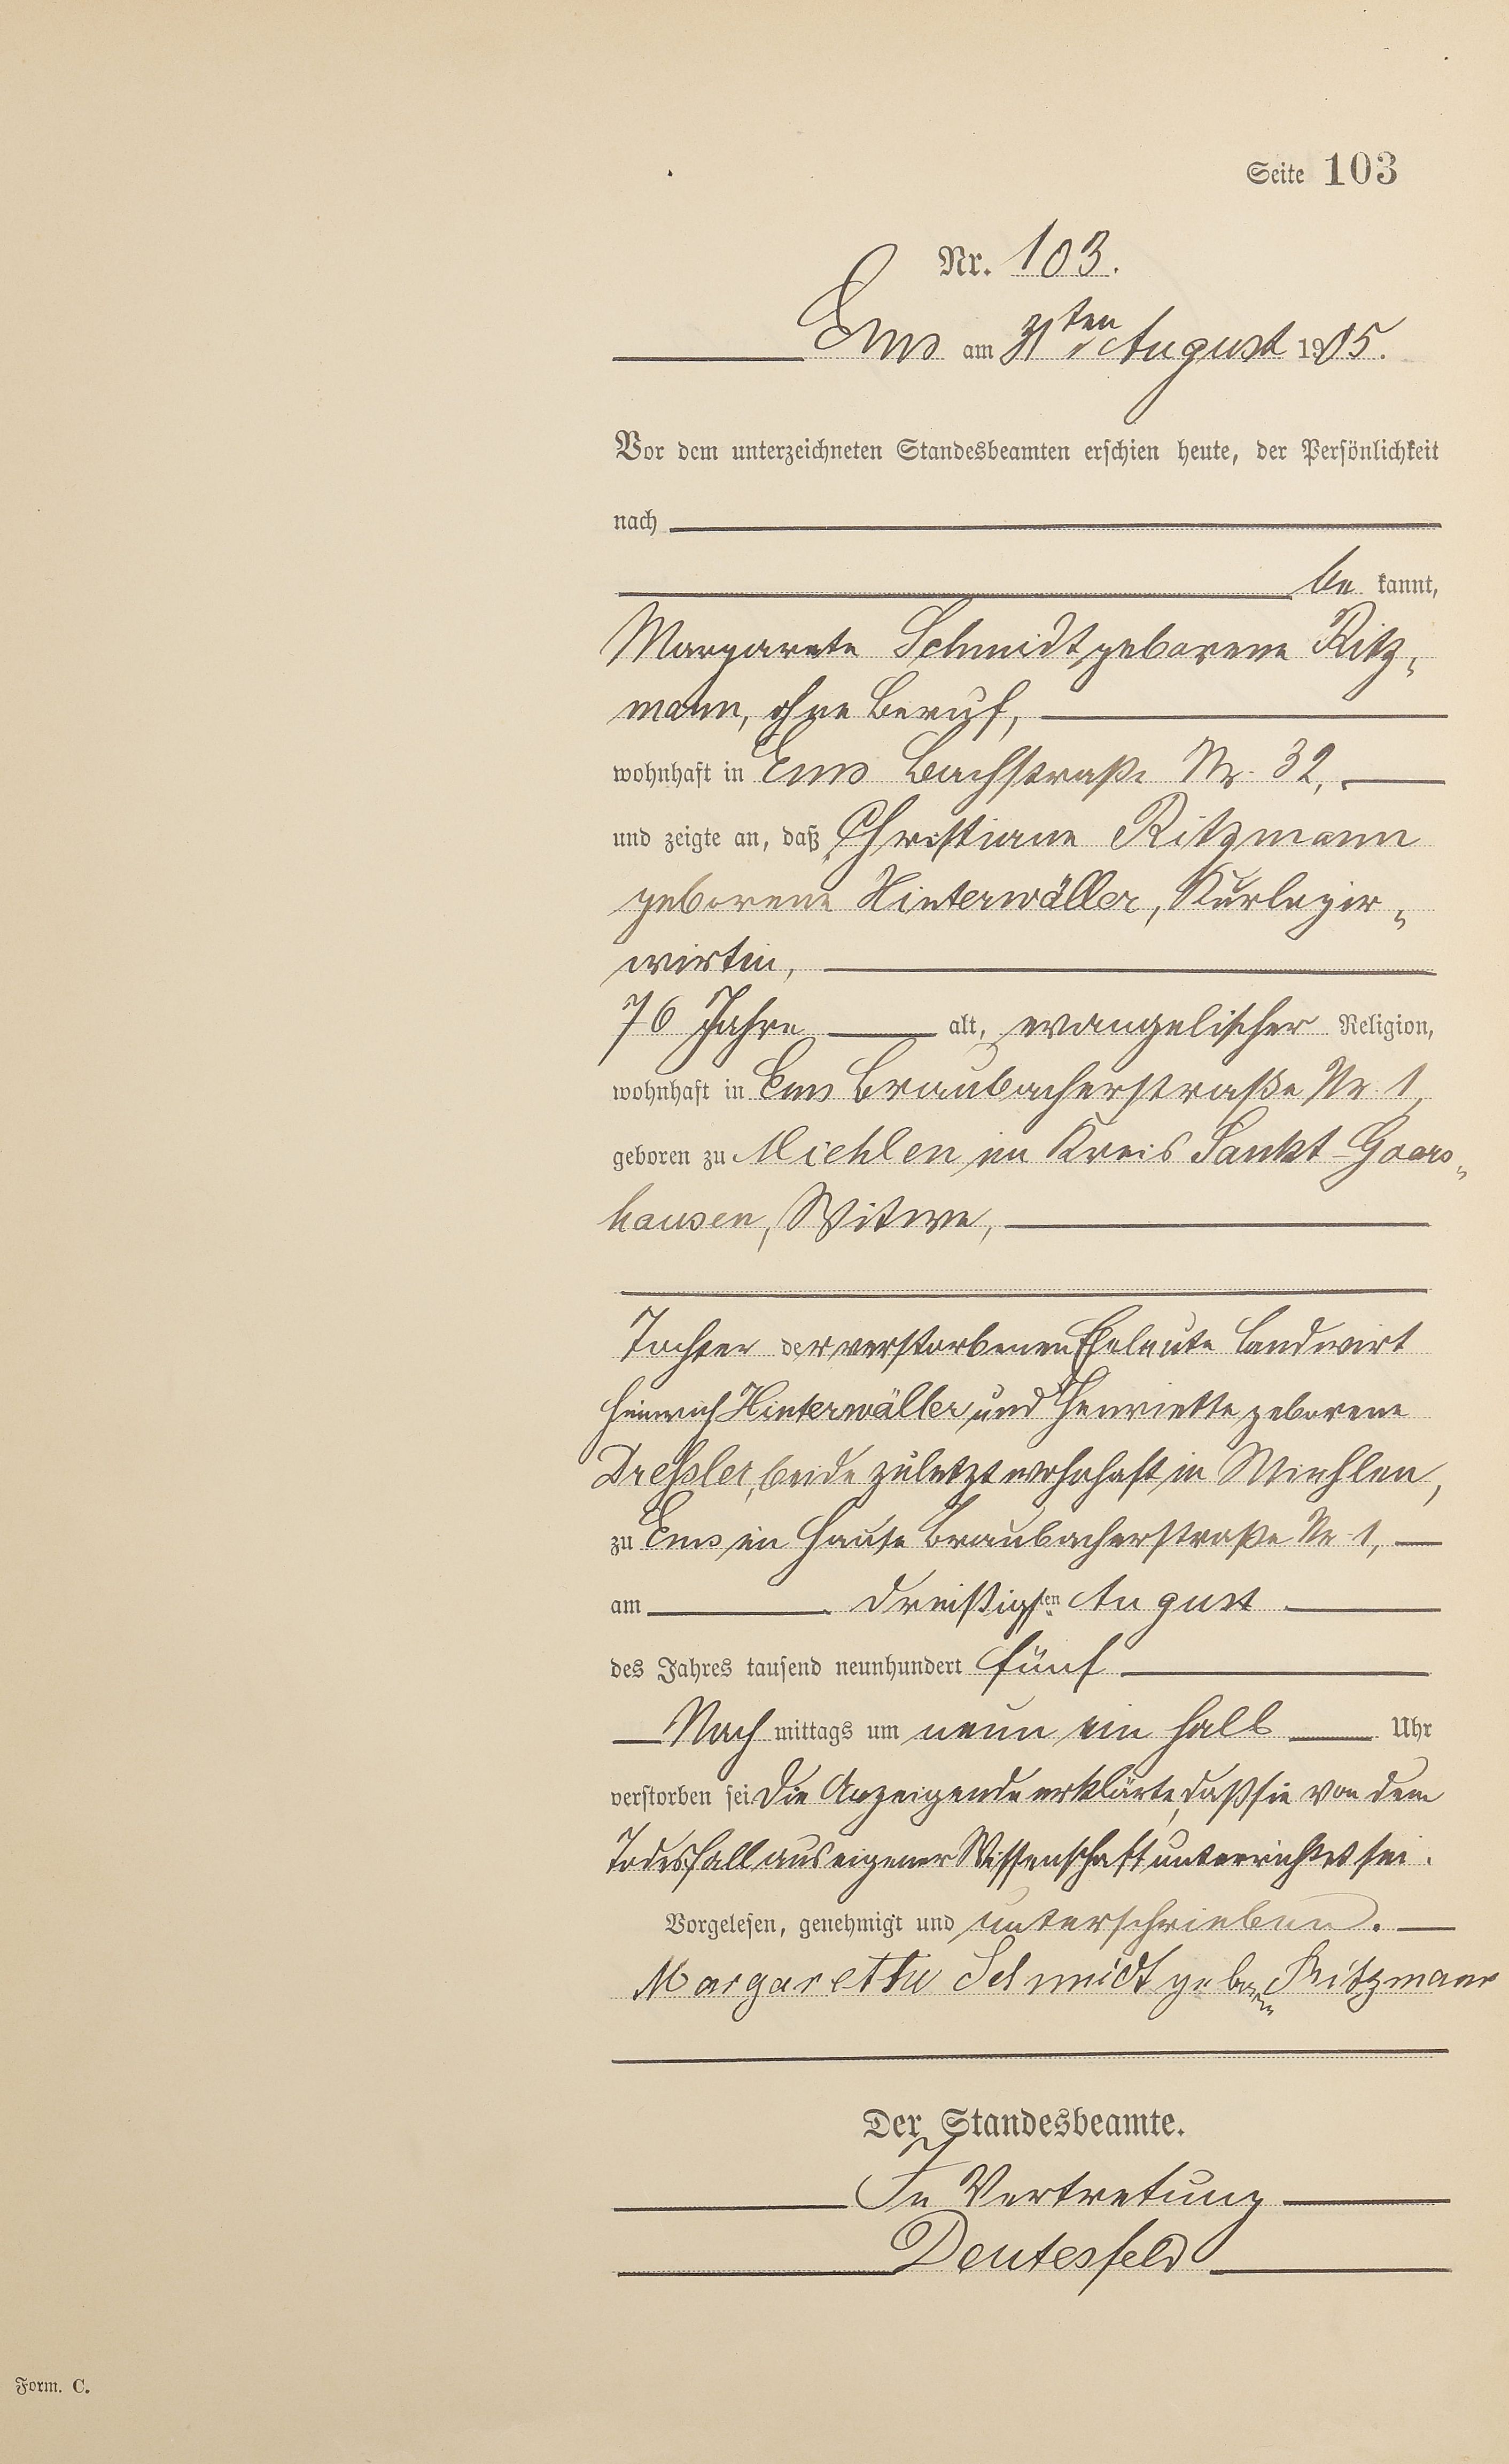 Seite 103
Nr. 103.
Ems am 31ten August 1905.
Vor dem unterzeichneten Standesbeamten erschien heute, der Persönlichkeit
nach
be kannt,
Margarete Schmidt geborene Ritz„
mann, ohne Beruf,
wohnhaft in Ems Bachstraße Nr. 32,
und zeigte an, daß Christiane Ritzmann
geborene Hinterwäller, Kurlogir„
wirtin,
76 Jahre alt, evangelischer Religion,
wohnhaft in Ems Braubacherstraße Nr 1,
geboren zu Miehlen im Kreis Sankt-Goars„
hausen, Witwe,
Tochter der verstorbenen Eheleute Landwirt
Heinrich Hinterwäller und Henriette geborene
Dreßler, beide zuletzt wohnhaft in Miehlen,
zu Ems im Hause Braubacherstraße Nr 1,
am dreißigsten August
des Jahres tausend neunhundert fünf
Nach mittags um neun ein halb Uhr
verstorben sei. Die Anzeigende erklärte, daß sie von dem
Todesfall aus eigener Wissenschaft unterrichtet sei.
Vorgelesen, genehmigt und unterschrieben.
Margarethe Schmidt geborene Ritzmann
Der Standesbeamte.
In Vertretung
Deutesfeld
Form. C.